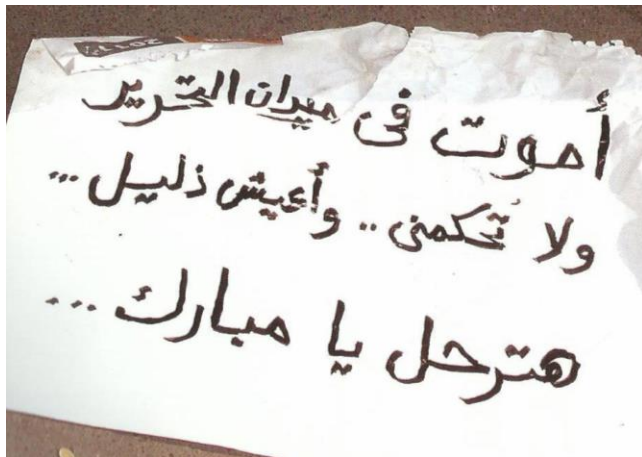 2011
أموت فى ميدان التحرير
ولا تُحكمنى .. وأعيش ذليل ...
هترحل يا مبارك ...